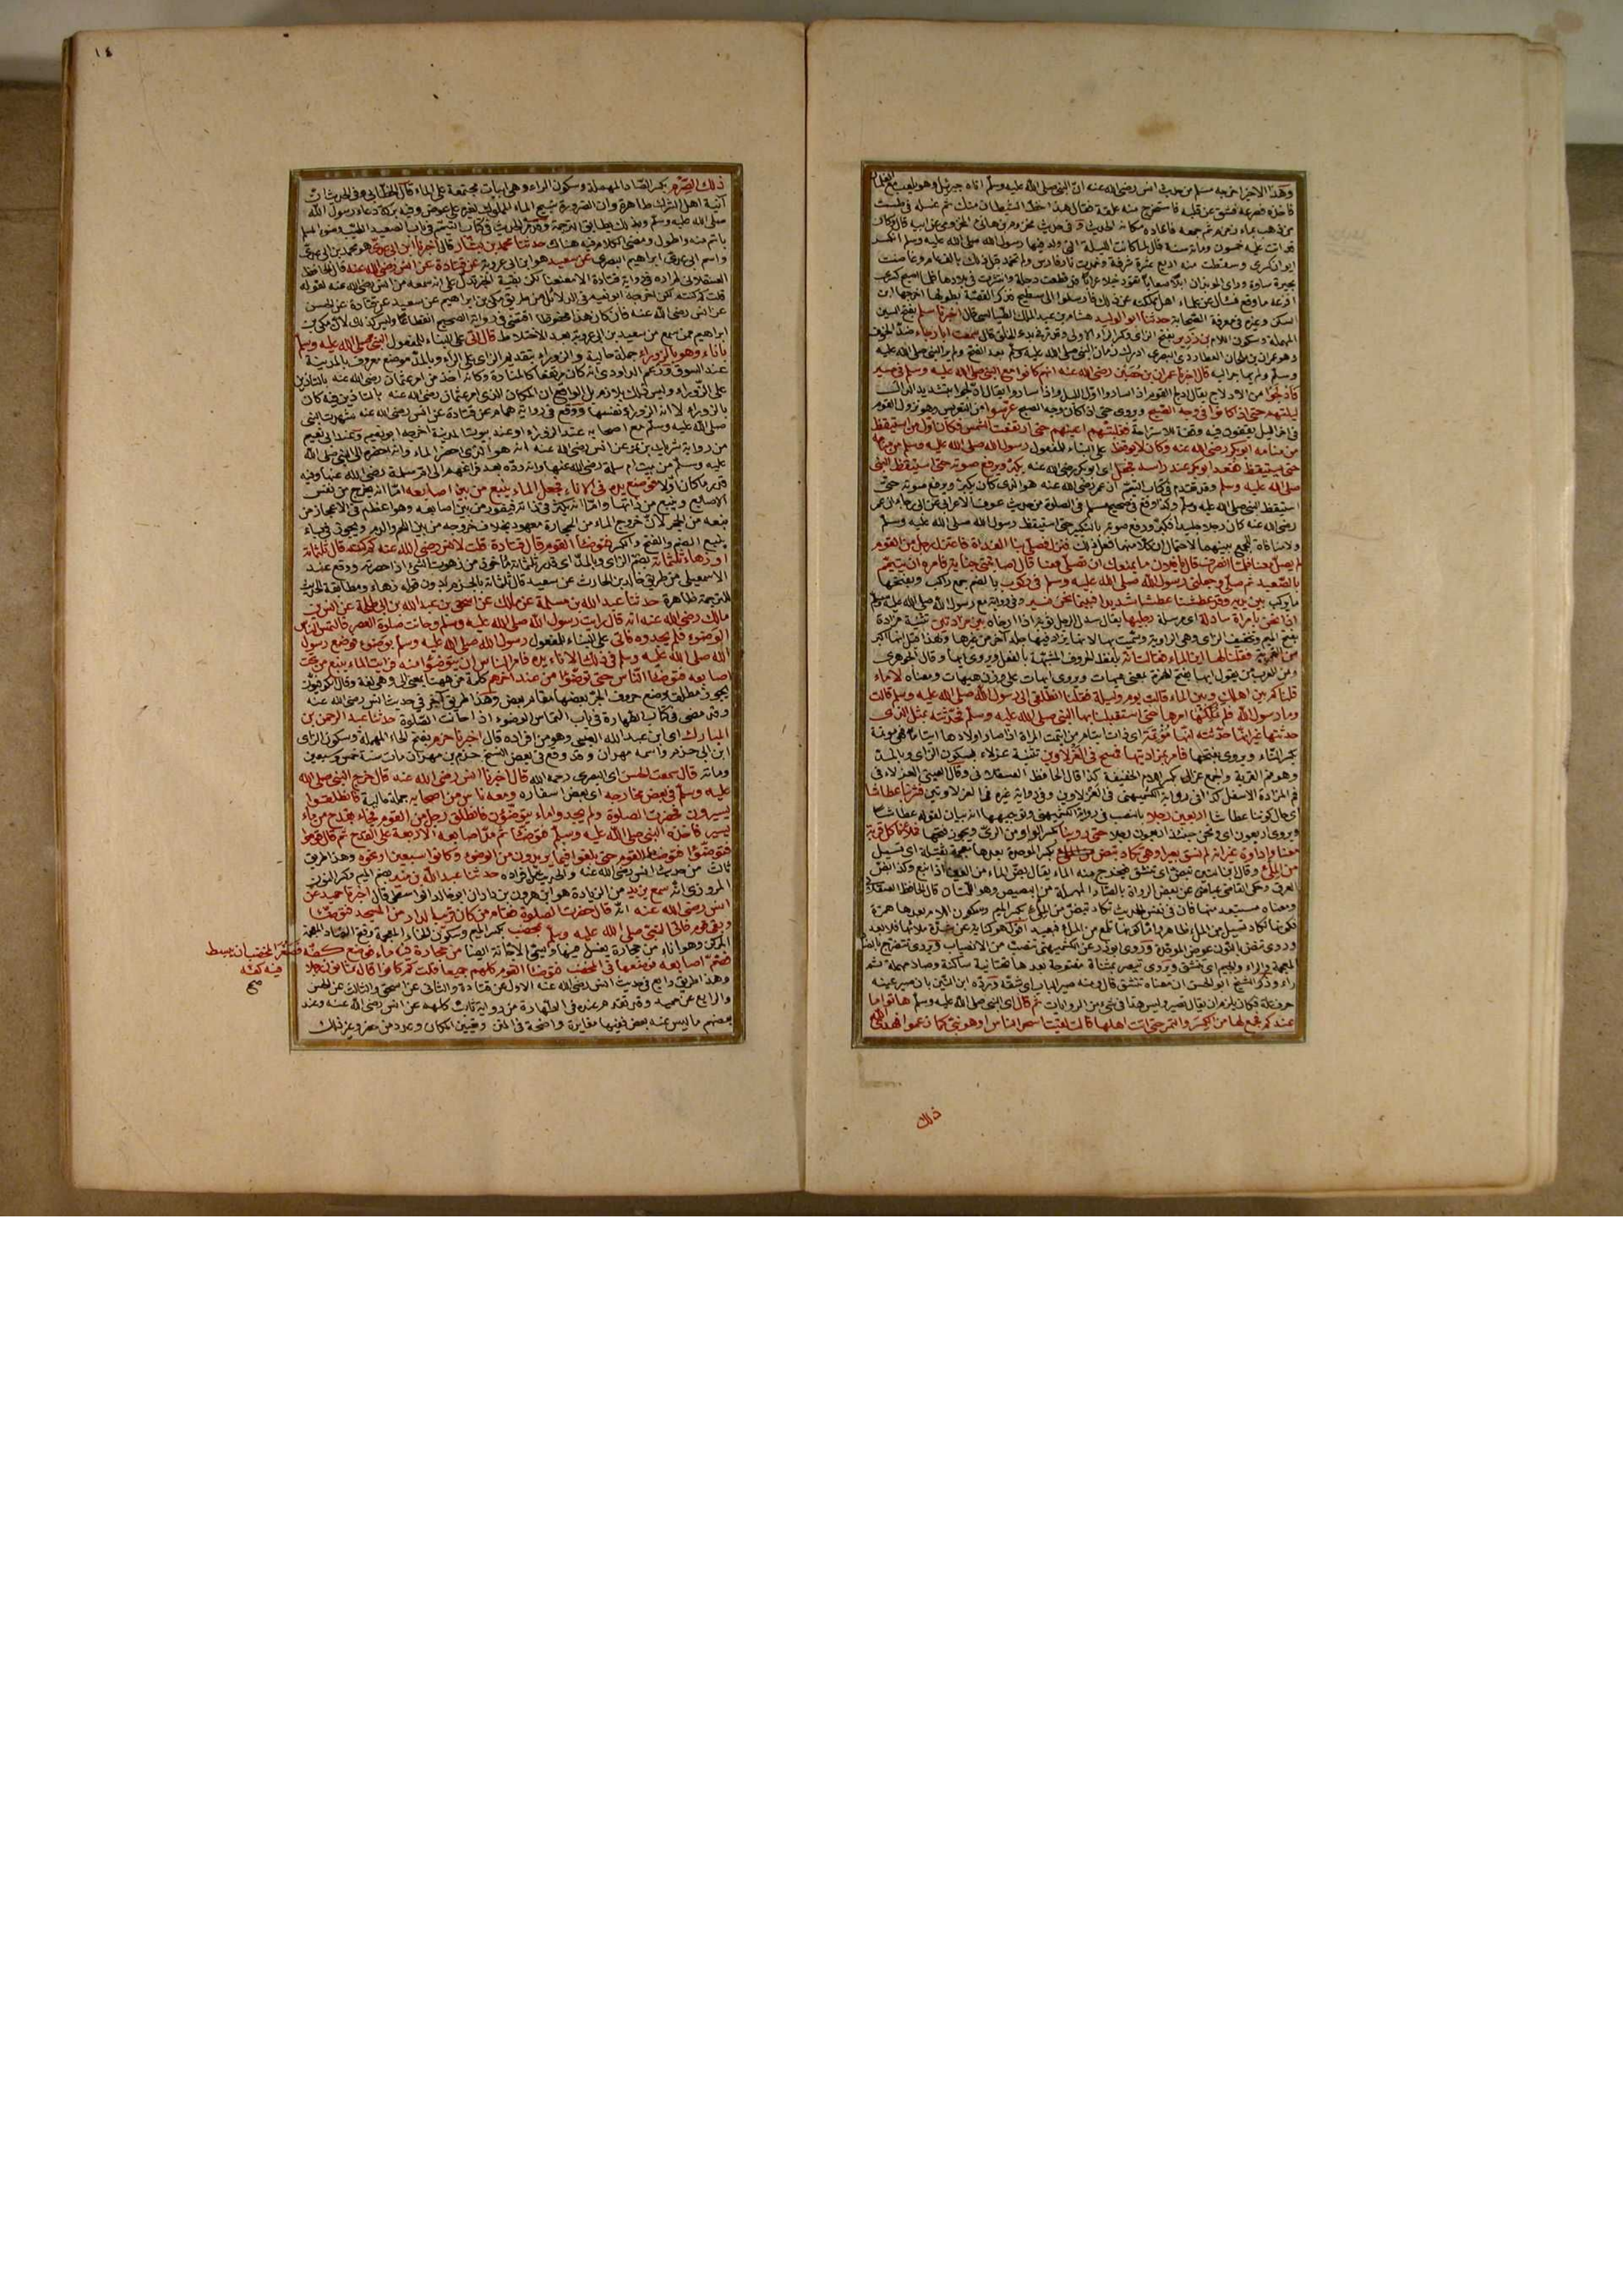 وهذا الاخير اخرجه مسلم من حديث انس رضى الله عنه ان النبى صلى الله عليه وسلم اتاه جبرئيل وهو يلعب مع الغلمان
فاخذه فصرعه فشق عن قلبه فاستخرج منه علقة فقال هذا حظ الشيطان منك ثم غسله فى طست
من ذهب بماء زمزم ثم جمعه فاعاده مكانه الحديث وفى حديث مخزوم بن هانئ المخزومى عن ابيه قال وكان
قد اتت عليه خمسون ومائة سنة قال لما كانت الليلة التى ولد فيها رسول الله صلى الله عليه وسلم انكسر
ايوان كسرى وسقطت منه اربع عشرة شرفة وخمدت نار فارس ولم تخمد قبل ذلك بالف عام وغاضت
بحيرة ساوة وراى الموبذان ابلا صعابا تقود خيلا عرابا قد قطعت دجلة وانتشرت فى بلادها فلما اصبح كسرى
افزعه ما وقع فسأل علماء اهل مملكته عن ذلك فارسلوا الى سطيح فذكر القصة بطولها اخرجها ابن
السكن وغيره فى معرفة الصحابة حدثنا ابو الوليد هشام بن عبد الملك الطيالسى قال اخبرنا سلم بفتح السين
المهملة وسكون اللام بن زرير بفتح الزاى وكسر الراء الاولى وقد مر فى بدء الخلق قال سمعت ابا رجاء ضد الخوف
وهو عمران بن ملحان العطاردى البصرى ادرك زمان النبى صلى الله عليه وسلم بعد الفتح ولم ير النبى صلى الله عليه
وسلم ولم يهاجر اليه قال اخبرنا عمران بن حصين رضى الله عنه انهم كانوا مع النبى صلى الله عليه وسلم فى مسير
فادلجوا من الادلاج يقال ادلج القوم اذا ساروا اول الليل واذا ساروا يقال ادّلجوا بتشديد الدال
ليلتهم حتى اذا كانوا فى وجه الصبح ويروى حتى اذا كان وجه الصبح عرسوا من التعريس وهو نزول القوم
فى اخر الليل يقفون فيه وقفة للاستراحة فغلبتهم اعينهم حتى ارتفعت الشمس فكان اول من استيقظ
من منامه ابو بكر رضى الله عنه وكان لا يوقظ على البناء للمفعول رسول الله صلى الله عليه وسلم من منامه
حتى يستيقظ فقعد ابو بكر عند راسه فجعل اى ابو بكر رضى الله عنه يكبر ويرفع صوته حتى استيقظ النبى
صلى الله عليه وسلم وقد تقدم فى كتاب التيمم ان عمر رضى الله عنه هو الذى كان يكبر ويرفع صوته حتى
استيقظ النبى صلى الله عليه وسلم وكذا وقع فى صحيح مسلم فى الصلوة من حديث عوف الاعرابى عن ابى رجاء ان عمر
رضى الله عنه كان رجلا جليدا فكبر ورفع صوته بالتكبير حتى استيقظ رسول الله صلى الله عليه وسلم
ولا منافاة للجمع بينهما لاحتمال ان كلا منهما فعل ذلك فنزل فصلى بنا الغداة فاعتزل رجل من القوم
لم يصل معنا فلما انصرف قال يا فلان ما يمنعك ان تصلى معنا قال اصابتنى جنابة فامره ان يتيمم
بالصعيد ثم صلى وجعلنى رسول الله صلى الله عليه وسلم فى ركوب بالضم جمع راكب وبفتحها
ما يركب بين يديه وقد عطشنا عطشا شديدا فبينما نحن نسير وفى رواية مع رسول الله صلى الله عليه وسلم
اذا نحن بامرأة سادلة اى مرسلة رجليها يقال سدل الرجل ثوبه اذا ارخاه بين مزادتين تثنية مزادة
بفتح الميم وتخفيف الزاى وهى الراوية وسميت بها لانها يزاد فيها جلد آخر من غيرها ولهذا قيل انها اكبر
من القربة فقلنا لها اين الماء فقالت انه بلفظ الحروف المشبهة بالفعل ويروى ايها وقال الجوهرى
ومن العرب من يقول ايها بفتح الهمزة بمعنى هيهات ويروى ايهات على وزن هيهات ومعناه لا ماء
قلنا كم بين اهلك وبين الماء قالت يوم وليلة فقلنا انطلقى الى رسول الله صلى الله عليه وسلم قالت
وما رسول الله فلم نملكها امرها حتى استقبلنا بها النبى صلى الله عليه وسلم فحدثته بمثل الذى
حدثتنا غير انها حدثته انها مؤتمة اى ذات ايتام من ايتمت المراة اذا صار اولادها ايتاما فهى موتمة
بكسر التاء ويروى بفتحها فامر بمزادتيها فمسح فى العزلاوين تثنية عزلاء بسكون الزاى وبالمد
وهو فم القربة والجمع عزالى بكسر اللام الخفيفة كذا قال الحافظ العسقلانى وقال العينى العزلاء فى
فم المزادة الاسفل كذا فى رواية الكشميهنى فى العزلاوين وفى رواية غيره فما العزلاوتين فشربنا عطاشا
اى حال كوننا عطاشا اربعين رجلا بالنصب فى رواية الكشميهنى وتوجيهها انه بيان لقوله عطاشا
ويروى اربعون اى ونحن حينئذ اربعون رجلا حتى روينا بكسر الواو من الرى ويجوز فتحها فملأنا كل قربة
معنا واداوة غير انه لم نسق بعيرا وهى تكاد تبض بكسر الموحدة بعدها معجمة ثقيلة اى تسيل
من الملء وقال ابن التين تبض اى تنشق فيخرج منه الماء يقال بض الماء من العين اذا نبع وكذا بض
العرق وحكى القاضى عياض عن بعض الرواة بالصاد المهملة من البصيص وهو اللمعان قال الحافظ العسقلانى
ومعناه مستبعد هنا فان فى نفس الحديث تكاد تبض من الملء بكسر الميم وسكون اللام بعدها همزة
ذلك
١٤
ذلك الصرم بكسر الصاد المهملة وسكون الراء وهى ابيات مجتمعة على الماء قال الخطابى وفى الحديث ان
آنية اهل الشرك طاهرة وان الضرورة تبيح الماء المملوك لغيره على عوض وفيه بركة دعاء رسول الله
صلى الله عليه وسلم وبذلك يطابق الترجمة وقد مر الحديث فى كتاب التيمم فى باب الصعيد الطيب وضوء المسلم
باتم منه واطول ومضى الكلام فيه هناك حدثنا محمد بن بشار قال اخبرنا ابن ابى عدى هو محمد بن ابى عدى
واسم ابى عدى ابراهيم البصرى عن سعيد هو ابن ابى عروبة عن قتادة عن انس رضى الله عنه قال الحافظ
العسقلانى لم اره فى رواية قتادة الا معنعنا لكن بقية الخبر تدل على انه سمعه من انس رضى الله عنه لقوله
قلت كم كنتم لكن اخرجه ابو نعيم فى الدلائل من طريق مكى بن ابراهيم عن سعيد عن قتادة عن الحسن
عن انس رضى الله عنه فان كان هذا محفوظا اقتضى فى رواية الصحيح انقطاعا وليس كذلك لان مكى بن
ابراهيم ممن سمع من سعيد بن ابى عروبة بعد الاختلاط قال اتى على البناء للمفعول النبى صلى الله عليه وسلم
باناء وهو بالزوراء جملة حالية والزوراء بتقديم الزاى على الراء وبالمد موضع معروف بالمدينة
عند السوق وزعم الداودى انه كان مرتفعا كالمنارة وكانه اخذ من امر عثمان رضى الله عنه بالتاذين
على الزوراء وليس ذلك بلازم بل الواقع ان المكان الذى امر عثمان رضى الله عنه بالتاذين فيه كان
بالزوراء لا انه الزوراء نفسها ووقع فى رواية همام عن قتادة عن انس رضى الله عنه شهدت النبى
صلى الله عليه وسلم مع اصحابه عند الزوراء او عند بيوت المدينة اخرجه ابو نعيم وعند ابى نعيم
من رواية شريك بن نمر عن انس رضى الله عنه انه هو الذى احضر الماء وانه احضره الى النبى صلى الله
عليه وسلم من بيت ام سلمة رضى الله عنها وانه رده بعد فراغهم الى ام سلمة رضى الله عنها وفيه
قدر ما كان اولا فوضع يده فى الاناء فجعل الماء ينبع من بين اصابعه اما انه يخرج من نفس
الاصابع وينبع من ذاتها واما انه يكثر فى ذاته فيفور من بين اصابعه وهو اعظم فى الاعجاز من
نبعه من الحجر لان خروج الماء من الحجارة معهود بخلاف خروجه من بين اللحم والدم ويجوز فى باء
ينبع الضم والفتح والكسر فتوضأ القوم قال قتادة قلت لانس رضى الله عنه كم كنتم قال ثلثمائة
او زهاء ثلثمائة بضم الزاى وبالمد اى قدر ثلثمائة ماخوذ من زهوت الشئ اذا حصرته ووقع عند
الاسمعيلى من طريق خالد بن الحارث عن سعيد قال ثلثمائة بالجزم بدون قوله زهاء ومطابقة الحديث
للترجمة ظاهرة حدثنا عبد الله بن مسلمة عن مالك عن اسحق بن عبد الله بن ابى طلحة عن انس بن
مالك رضى الله عنه انه قال رايت رسول الله صلى الله عليه وسلم وحانت صلوة العصر فالتمس الناس
الوضوء فلم يجدوه فاتى على البناء للمفعول رسول الله صلى الله عليه وسلم بوضوء فوضع رسول
الله صلى الله عليه وسلم فى ذلك الاناء يده فامر الناس ان يتوضؤا منه فرايت الماء ينبع من تحت
اصابعه فتوضأ الناس حتى توضؤا من عند آخرهم كلمة من ههنا بمعنى الى وهى لغة وقال الكوفيون
يجوز مطلقا وضع حروف الجر بعضها مقام بعض وهذا طريق آخر فى حديث انس رضى الله عنه
وقد مضى فى كتاب الطهارة فى باب التماس الوضوء اذا حانت الصلوة حدثنا عبد الرحمن بن
المبارك اى ابن عبد الله العيشى وهو من افراده قال اخبرنا حزم بفتح الحاء المهملة وسكون الزاى
ابن ابى حزم واسمه مهران وقد وقع فى بعض النسخ حزم بن مهران مات سنة خمس وسبعين
ومائة قال سمعت الحسن اى البصرى رحمه الله قال اخبرنا انس رضى الله عنه قال خرج النبى صلى الله
عليه وسلم فى بعض مخارجه اى بعض اسفاره ومعه ناس من اصحابه جملة حالية فانطلقوا
يسيرون فحضرت الصلوة ولم يجدوا ماء يتوضؤن فانطلق رجل من القوم فجاء بقدح من ماء
يسير فاخذه النبى صلى الله عليه وسلم فتوضأ ثم مد اصابعه الاربعة على القدح ثم قال قوموا
فتوضؤا فتوضأ القوم حتى بلغوا فيما يريدون من الوضوء وكانوا سبعين او نحوه وهذا طريق
ثالث من حديث انس رضى الله عنه والحديث من افراده حدثنا عبد الله بن منير بضم الميم وكسر النون
المروزى انه سمع يزيد من الزيادة هو ابن هرون بن زاذان ابو خالد الواسطى قال اخبرنا حميد عن
انس رضى الله عنه انه قال حضرت الصلوة فقام من كان قريب الدار من المسجد فتوضأ
وبقى قوم فاتى النبى صلى الله عليه وسلم بمخضب بكسر الميم وسكون الخاء المعجمة وفتح الضاد المعجمة
المركن وهو اناء من حجارة يغسل فيها ويسمى الاجانة ايضا من حجارة فيه ماء فوضع كفه فصغر المخضب ان يبسط
فيه كفه
صح
فضم اصابعه فوضعها فى المخضب فتوضأ القوم كلهم جميعا قلت كم كانوا قال ثمانون رجلا
وهذا طريق رابع فى حديث انس رضى الله عنه الاول عن قتادة والثانى عن اسحق والثالث عن الحسن
والرابع عن حميد وقد تقدم عنده فى الطهارة من رواية ثابت كلهم عن انس رضى الله عنه وعند
بعضهم ما ليس عند بعض وفيها مغايرة واضحة فى المتن وتعيين المكان وعدد من حضر وغير ذلك